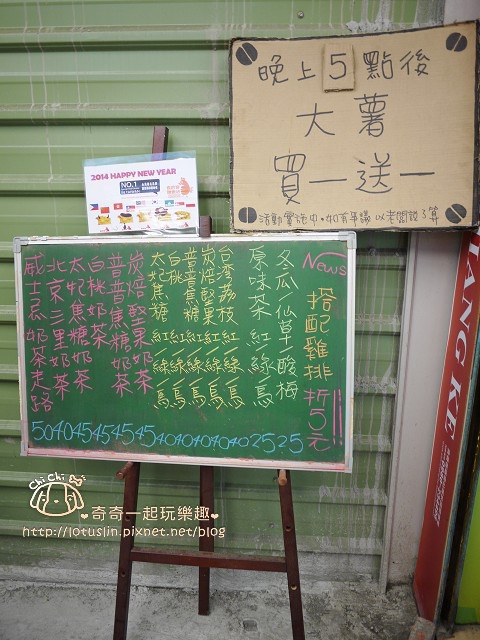 晚上5點後
大薯
買一送一
活動實施中,如有爭議 以老闆說了算
2014 HAPPY NEW YEAR
NO.1
News
搭配雞排折5元!!
冬瓜/仙草/酸梅 25
原味茶 紅/綠/烏 25
台灣荔枝 紅/綠/烏 40
炭焙堅果 紅/綠/烏 40
普普焦糖 紅/綠/烏 40
白桃 紅/綠/烏 40
太妃焦糖 紅/綠/烏 40
炭焙堅果奶茶 45
普普焦糖奶茶 45
白桃奶茶 45
太妃焦糖奶茶 45
北京三里奶茶 40
威士忌奶茶走路 50
ANG KE
Chi Chi
奇奇一起玩樂趣
http://lotuslin.pixnet.net/blog